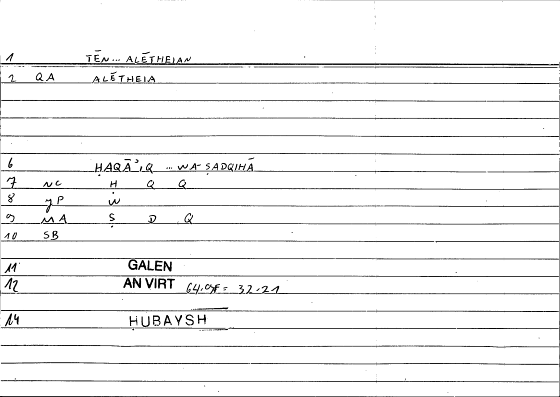 1 TĒN... ALĒTHEIAN
2 QA ALĒTHEIA
6 ḤAQĀʾIQ ... WA-ṢADQIHĀ
7 NC Ḥ Q Q
8 yP W
9 MA Ṣ D Q
10 SB
11 GALEN
12 AN VIRT = 32.21
14 ḤUBAYSH